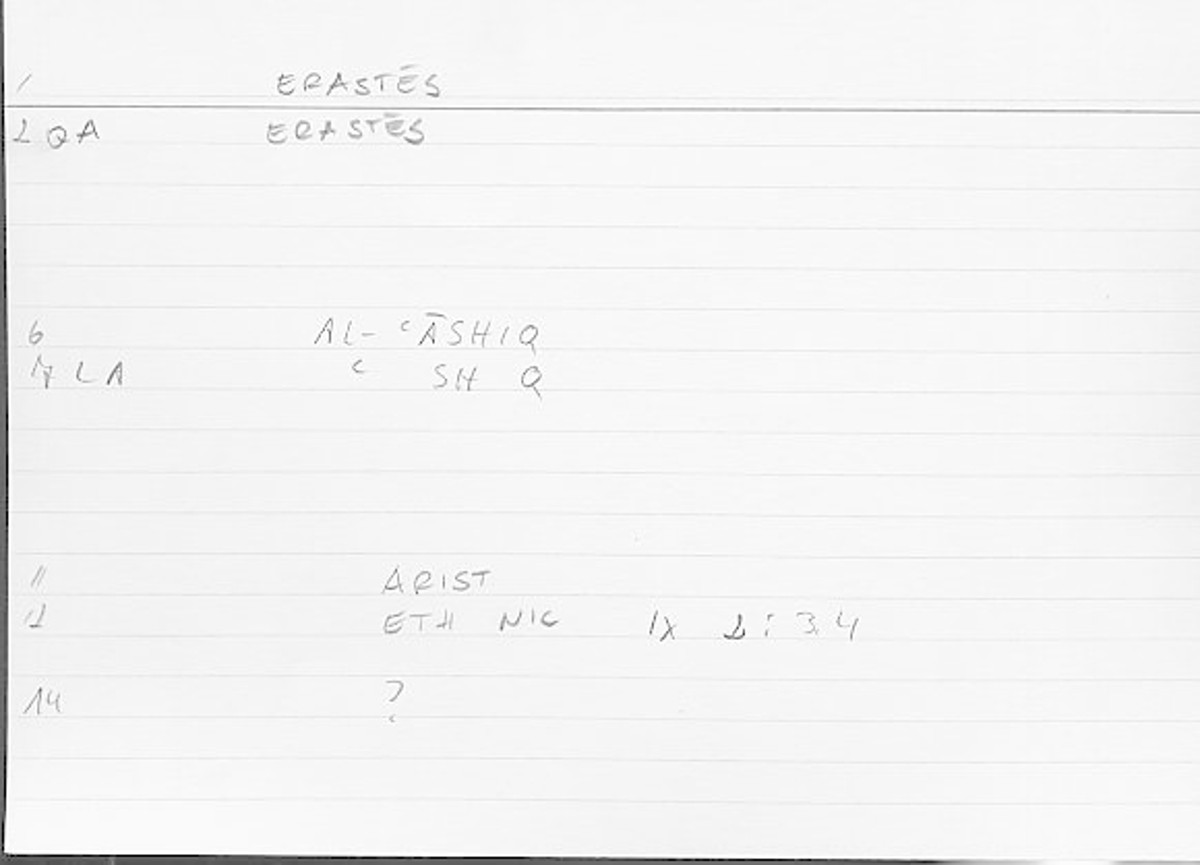 1 ERASTĒS
2 QA ERASTĒS
6 AL- ʿĀSHIQ
7 LA ʿ SH Q
11 ARIST
12 ETH NIC IX 2 : 3.4
14 ?